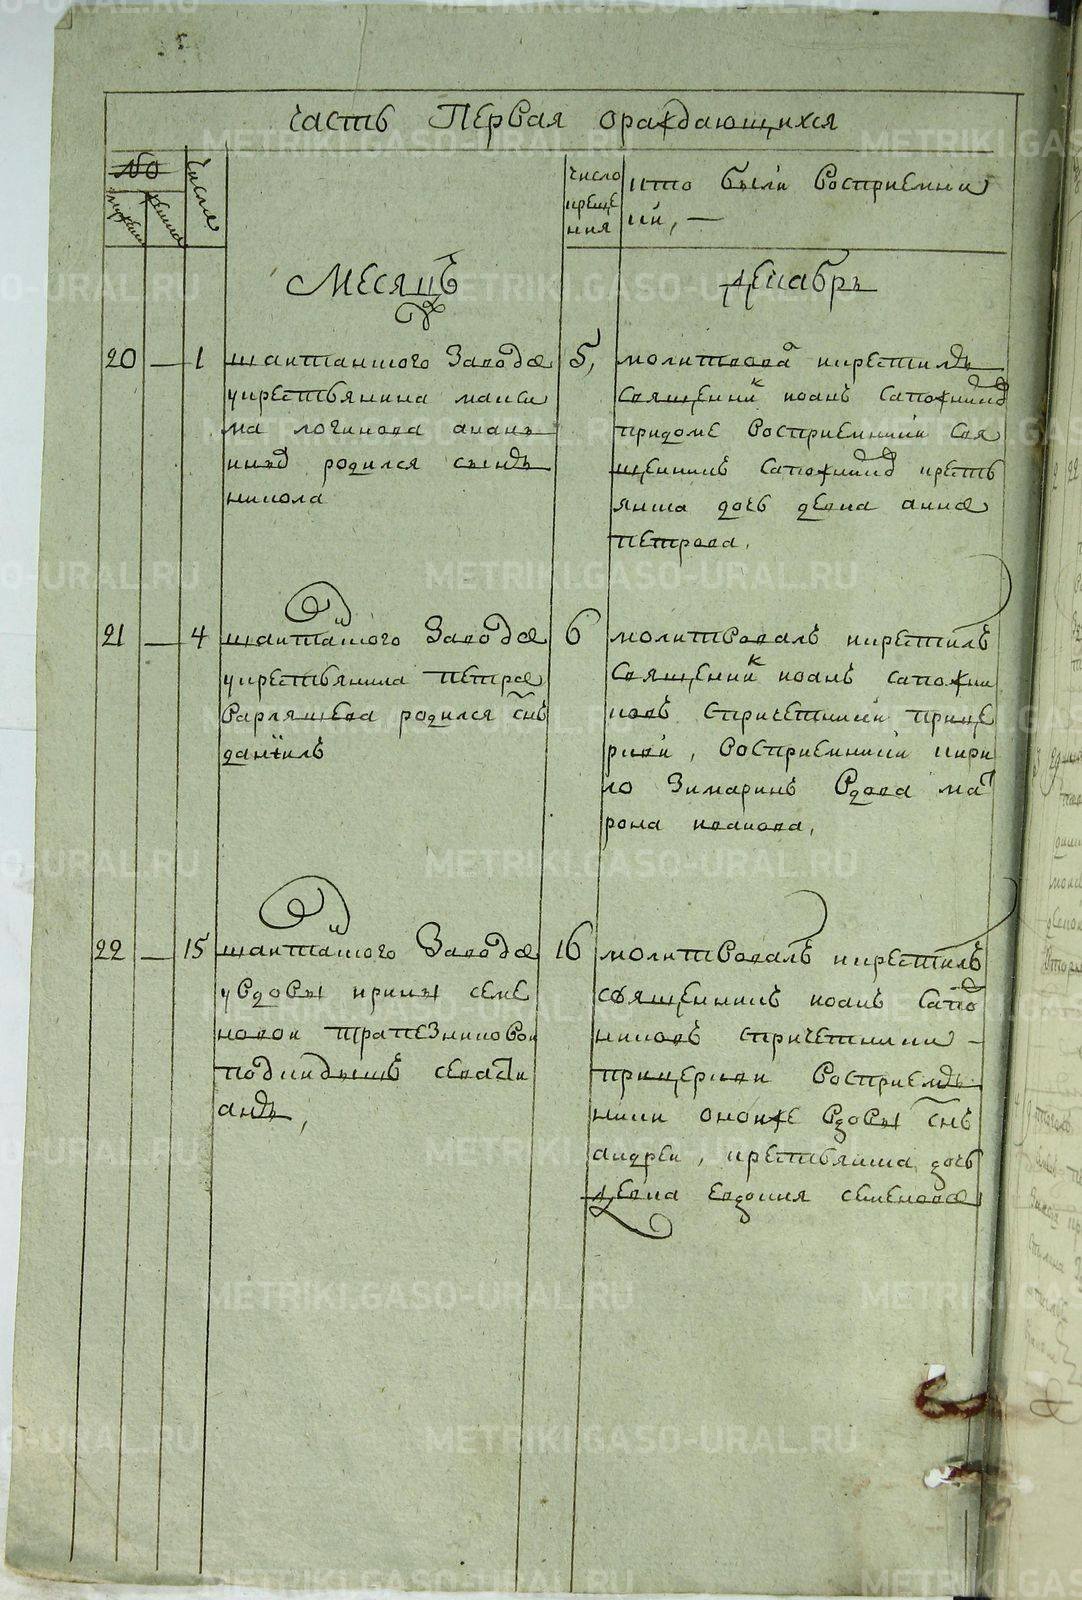 часть Первая ораждающихся
№
мужеск
женска
числа
число креще ния
кто были восприемни
ки, —
Месяцъ
декабрь
20 — 1
шайтанского завода
укрестьянина макси
ма логинова
родился сынъ
никола
5,
молитвова и крестилъ
священник иоанъ сапожник
придоме восприемники свя
щенникъ сапожник кресть
янска дочь девка анна
петрова,
21 — 4
шайтанского завода
укрестьянина петра
варлашева родился снъ
даниилъ
6
молитвовалъ и крестилъ
священник иоанъ сапожни
ковъ спричетники прице
ркви, восприемники кири
ло зимаринъ вдова ма
рона иванова,
22 — 15
шайтанского завода
увдовы ирины семе
новои трапезниковои
подкидышъ севасти
анъ,
16
молитвовалъ и крестилъ
священникъ иоанъ сапо
никовъ спричетники —
прицеркви восприем
ники оноиже вдовы снъ
андреи, крестьянска дочь
девка евдокия семенова
METRIKI.GASO-URAL.RU